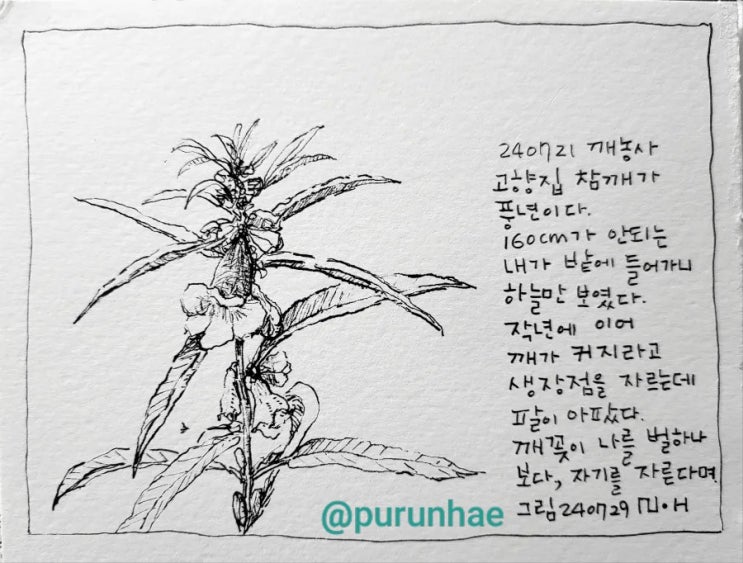 240721 깨농사
고향집 참깨가
풍년이다.
160cm가 안되는
내가 밭에 들어가니
하늘만 보였다.
작년에 이어
깨가 커지라고
생장점을 자르는데
팔이 아팠다.
깨꽃이 나를 벌하나
보다, 자기를 자른다며
그림 240729 M·H
@purunhae